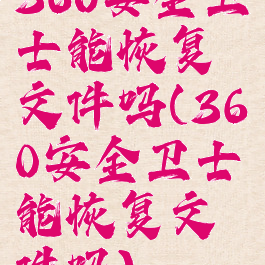 360安全卫
士能恢复
文件吗(36
0安全卫士
能恢复文
件吗)